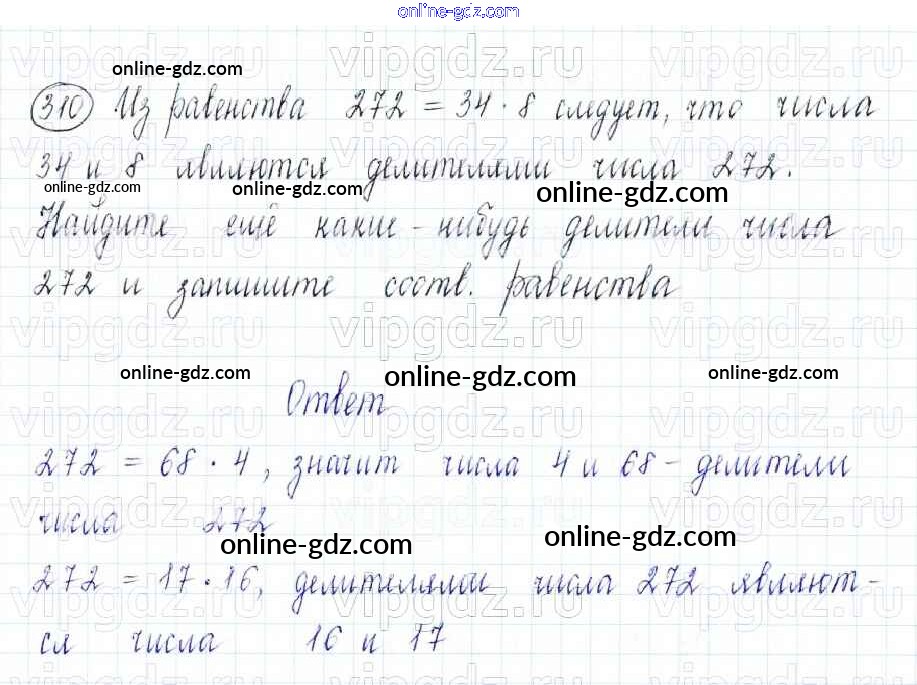 online-gdz.com
vipgdz.ru vipgdz.ru vipgdz.ru
online-gdz.com
310 Из равенства 272 = 34 · 8 следует, что числа
34 и 8 являются делителями числа 272.
online-gdz.com online-gdz.com online-gdz.com
vipgdz.ru vipgdz.ru vipgdz.ru
Найдите ещё какие-нибудь делители числа
272 и запишите соотв. равенства
vipgdz.ru vipgdz.ru vipgdz.ru
online-gdz.com online-gdz.com online-gdz.com
Ответ
vipgdz.ru vipgdz.ru vipgdz.ru
272 = 68 · 4, значит числа 4 и 68 - делители
vipgdz.ru vipgdz.ru vipgdz.ru
числа 272
online-gdz.com online-gdz.com
272 = 17 · 16, делителями числа 272 являют-
vipgdz.ru vipgdz.ru vipgdz.ru
ся числа 16 и 17
vipgdz.ru vipgdz.ru vipgdz.ru